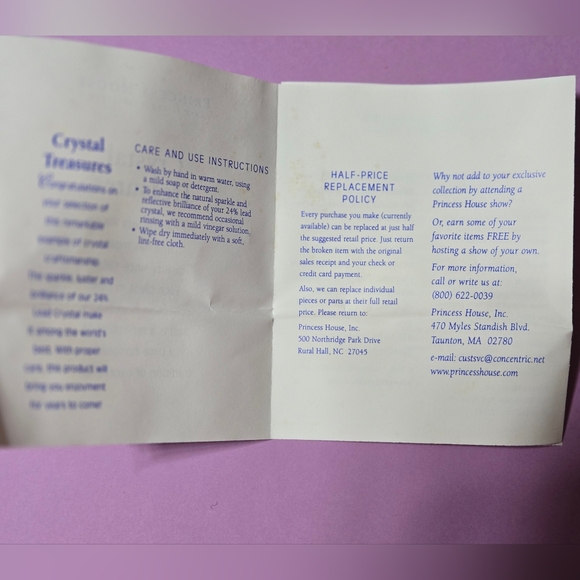 Crystal
Treasures
Congratulations on
your selection of
this remarkable
example of crystal
craftsmanship.
The sparkle, luster and
brilliance of our 24%
Lead Crystal make
it among the world's
best. With proper
care, this product will
bring you enjoyment
for years to come!
CARE AND USE INSTRUCTIONS
• Wash by hand in warm water, using
a mild soap or detergent.
• To enhance the natural sparkle and
reflective brilliance of your 24% lead
crystal, we recommend occasional
rinsing with a mild vinegar solution.
• Wipe dry immediately with a soft,
lint-free cloth.
HALF-PRICE
REPLACEMENT
POLICY
Every purchase you make (currently
available) can be replaced at just half
the suggested retail price. Just return
the broken item with the original
sales receipt and your check or
credit card payment.
Also, we can replace individual
pieces or parts at their full retail
price. Please return to:
Princess House, Inc.
500 Northridge Park Drive
Rural Hall, NC 27045
Why not add to your exclusive
collection by attending a
Princess House show?
Or, earn some of your
favorite items FREE by
hosting a show of your own.
For more information,
call or write us at:
(800) 622-0039
Princess House, Inc.
470 Myles Standish Blvd.
Taunton, MA 02780
e-mail: custsvc@concentric.net
www.princesshouse.com